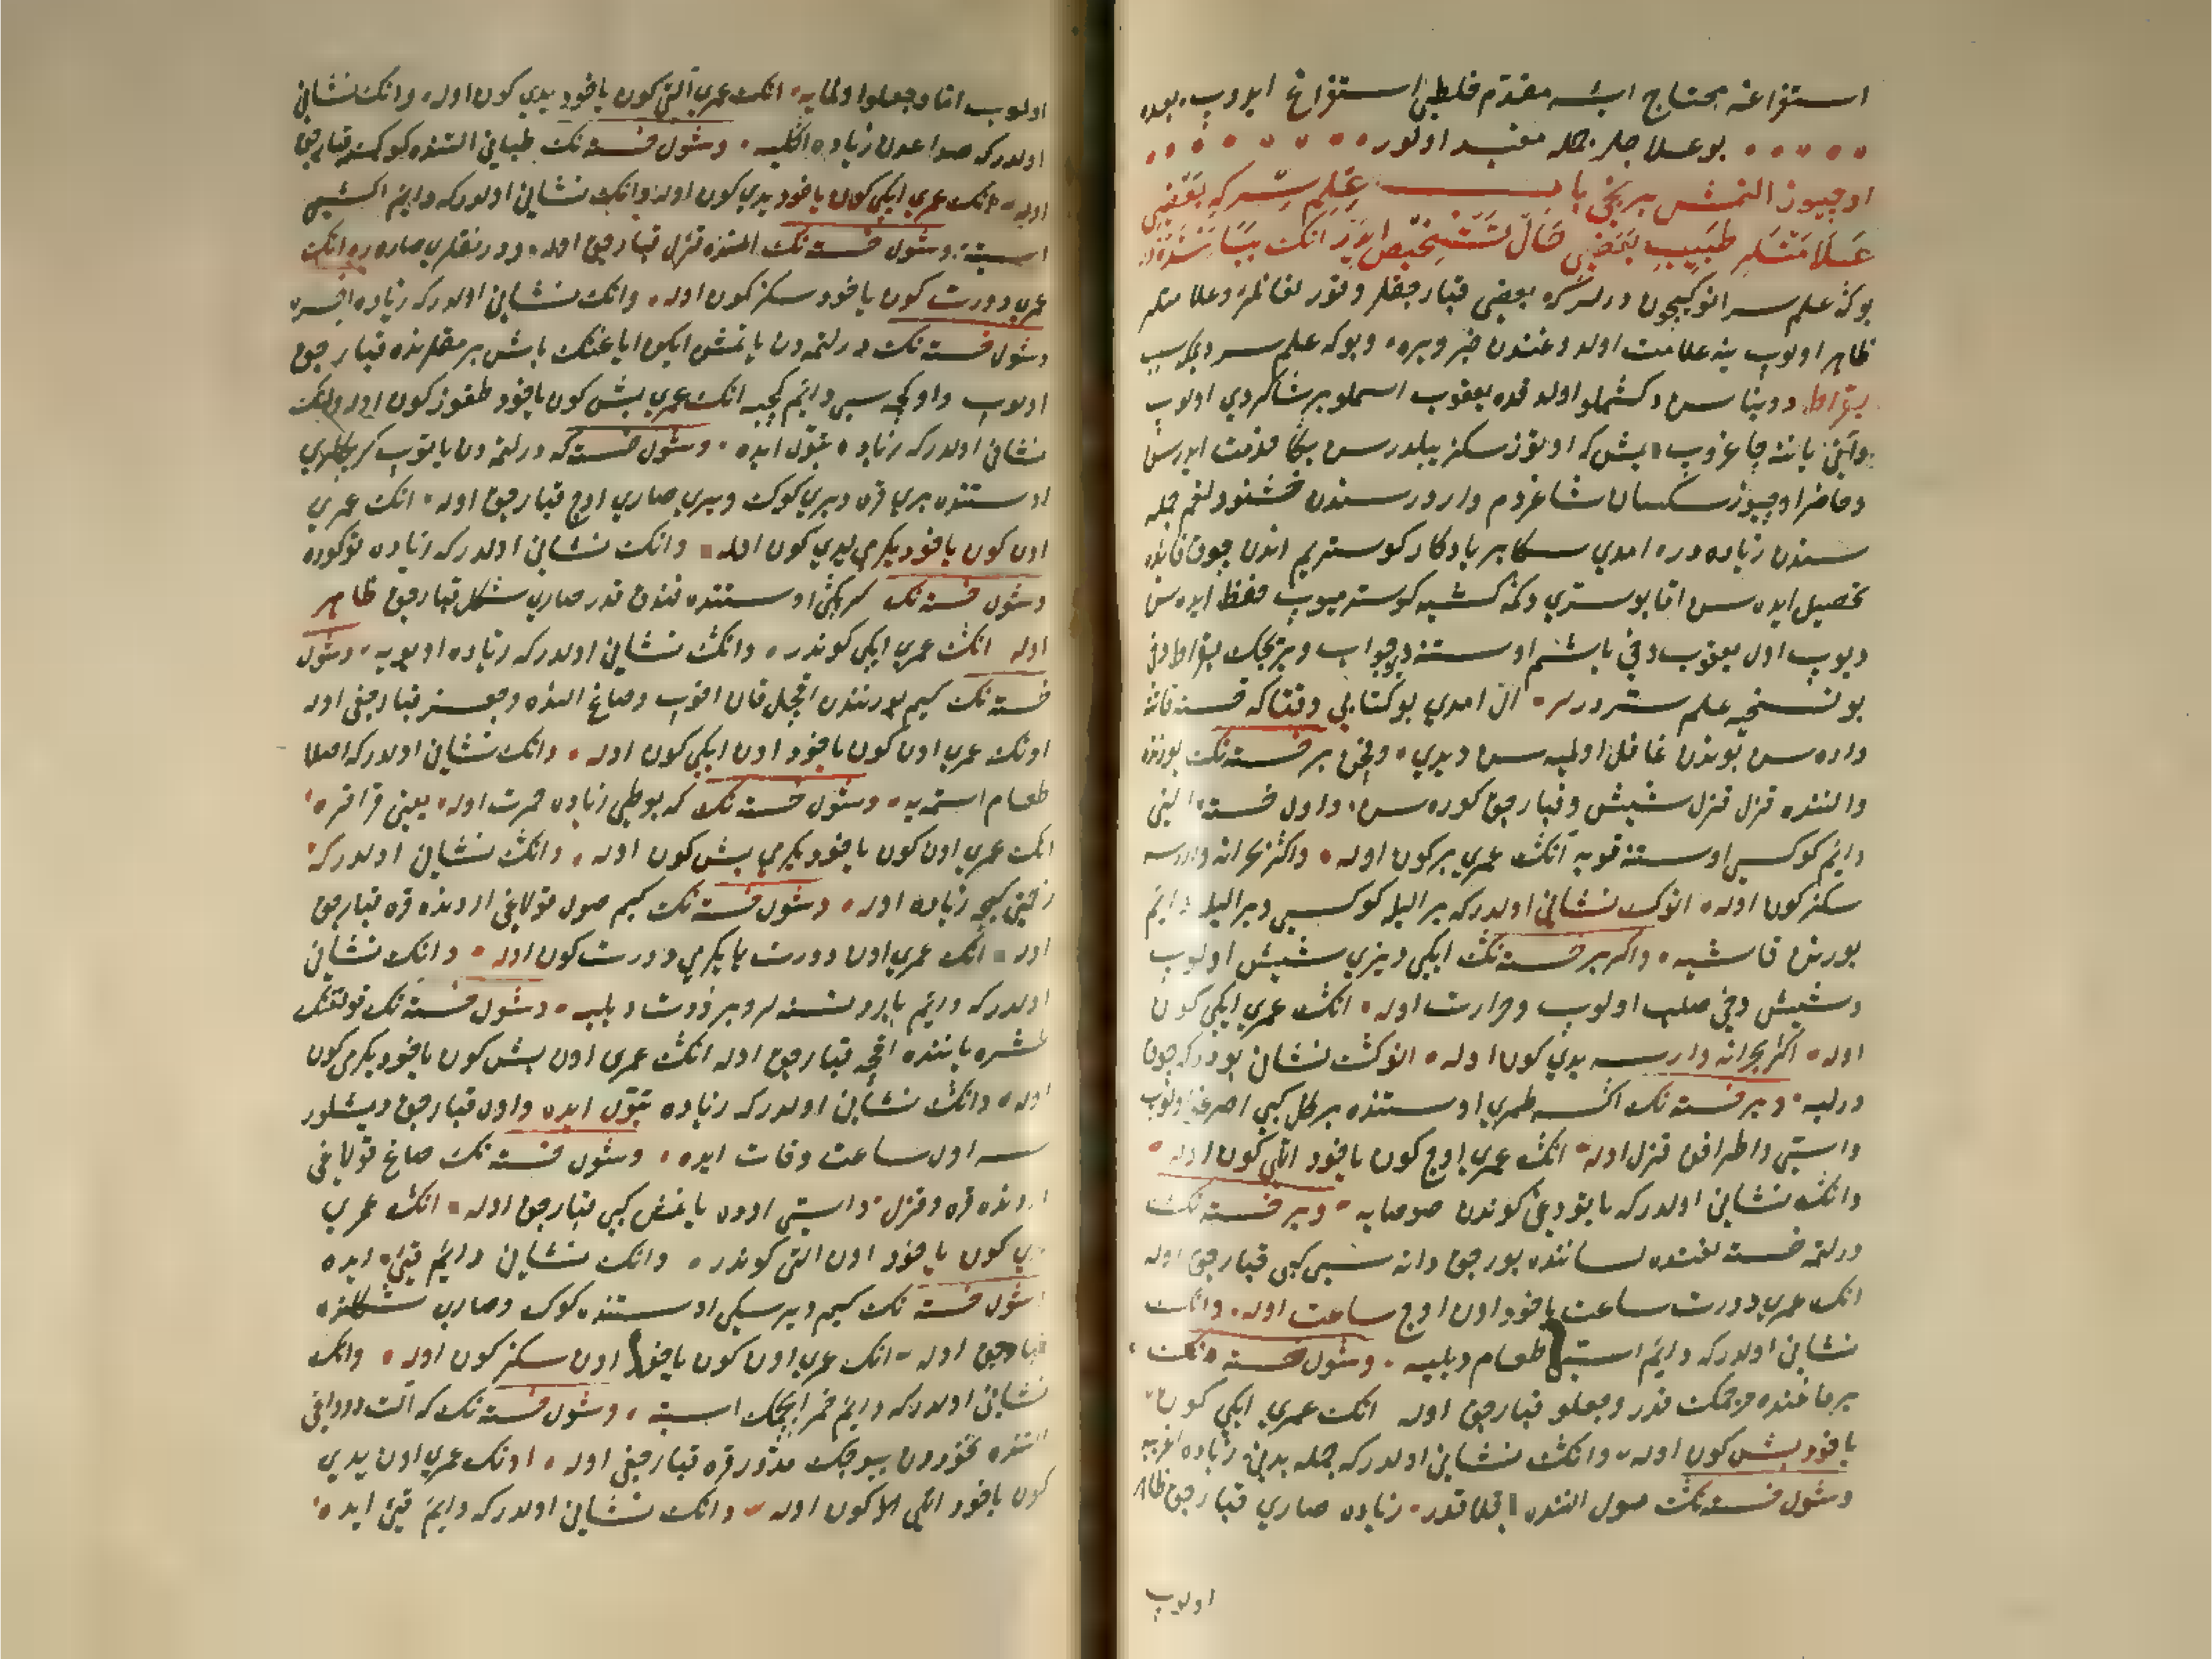 استفراغه محتاج ايسه مقدم خلطی استفراغ ايدوب بعده
بو علاجلر جمله مفيد اولور
اوچيوز التمش برنجی باب علم سر که بعضی
علامتلر طبيب بعضی حال تشخيص ايدر انک بياننده در
بوکه علم سر انوکيچون ديرلر که بعضی قبارجقلر و
ظاهر اولوب ينه علامت اولدوغندن خبر ويره و بوکه علم سر ديمک سبب
بقراط دنياسن دکشملو اولدقده يعقوب اسملو بر شاکردی اولوب
وانی ياننه چاغروب بش که اوتوز سکز ييلدر سن بکا خدمت ايدرسن
وحاضر اوچيوز سکسان شاغردم واردر سندن خشنودلغم جمله
سندن زياده در امدی سکا بر يادکار کوستريم اندن چوق فائده
تحصيل ايده سن اما بو سری کمسه کشيه کوسترميوب حفظ ايده سن
ديوب اول يعقوب دخی باشم اوستنه دير جواب ويرجک بقراط دخی
بو نسخه علم سردر ال امدی بو کتابی وقتاکه خسته قاتنه
واره سن بوندن غافل اولميه سن ديدی وقچن بر خسته نک يوزنده
والنده قزل قزل شيش وقبارجق کوره سن واول خسته الينی
دايم کوکسی اوستنه قويه انک عمری بر کون اوله واکر بحرانه وارر سه
سکز کون اوله انوک نشانی اولدر که بر اليله کوکسی و بر اليله دايم
بورنن قاشيه واکر بر خسته نک ايکی ديزی شيش اولوب
وشيش دخی صلب اولوب وحرارت اوله انک عمری ايکی کون
اوله اکر بحرانه وارر سه يدی کون اوله انوک نشانی بودر که چوق
درليه وبر خسته نک اکسه طمری اوستنده بر کل کبی
واسی واطرافی قزل اوله انک عمری اوچ کون ياخود اللی کون اوله
وانک نشانی اولدر که ياتودغی کوندن صوصايه وبر خسته نک
درلمه خسته لغنده لساننده بورجق دانه سی کبی قبارجق اوله
انک عمری دورت ساعت ياخود اون اوچ ساعت اوله وانک
نشانی اولدر که دايم اسی طعام ديليه وشول خسته نک
برماغنده مرجمک قدر وجعلو قبارجق اوله انک عمری ايکی کون
ياخود بش کون اوله وانک نشانی اولدر که جمله بدنی زياده اغريه
وشول خسته نک صول النده باقلا قدر زياده صاری قبارجق ظاهر
اولوب
اولوب اما وجعلو اولمايه انک عمری التی کون ياخود يدی کون اوله وانک نشانی
اولدر که زياده وشول خسته نک طبانی التنده کوکسنه قبارجق
اوله انک عمری ايکی کون ياخود يدی کون اوله وانک نشانی اولدر که دايم اکشی
استيه وشول خسته نک النده قزل قبارجق اوله و صاره ره انک
عمری دورت کون ياخود سکز کون اوله وانک نشانی اولدر که زياده
وشول خسته نک درلتمه دن ياتمش ايکن اياغنک باش برمقلرنده قبارجق
اولوب دايم انک عمری بش کون ياخود طقوز کون اوله وانک
نشانی اولدر که زياده تبول ايده وشول خسته که درلتمه دن ياتوب کربکلری
اوستنده بری قره وبری کوک وبری صاری اوچ قبارجق اوله انک عمری
اون کون ياخود يکرمی يدی کون اوله وانک نشانی اولدر که زياده توکوره
وشول خسته نک کربکی اوستنده فندق قدر صاری شکل قبارجق ظاهر
اوله انک عمری ايکی کوندر وانک نشانی اولدر که زياده اويويه وشول
خسته نک کيم بورنندن اقجل قان اقوب وصاغ النده وجعسز قبارجغی اوله
اونک عمری اون کون ياخود اون ايکی کون اوله وانک نشانی اولدر که اصلا
طعام استميه وشول خسته نک که بوطی زياده حرت اوله يعنی قزاقره
انک عمری اون کون ياخود يکرمی بش کون اوله وانک نشانی اولدر که
زياده اوله وشول خسته نک کيم صول قولاغی اردنده قره قبارجق
اوله انک عمری اون دورت يا يکرمی دورت کون اوله وانک نشانی
اولدر که دايم بارد نسنه لر وبرودت ديليه وشول خسته نک قولتغنک
طشره ياننده اقجه قبارجق اوله انک عمری اون بش کون ياخود يکرمی کون
اوله وانک نشانی اولدر که زياده تبول ايده واول قبارجق ديشلور
سه اول ساعت وفات ايده وشول خسته نک صاغ قولاغی
اردنده قره وقزل واسی اودن يانمش کبی قبارجق اوله انک عمری
يدی کون ياخود اون التی کوندر وانک نشانی دايم قی ايده
وشول خسته نک کيم ديرسکی اوستنده کوک وصاری شکلنده
قبارجق اوله انک عمری اون کون ياخود اون سکز کون اوله وانک
نشانی اولدر که دايم خمر ايچمک استيه وشول خسته نک که الت دوداغی
التنده نخوددن بيوجک مدور قره قبارجغی اوله اونک عمری اون يدی
کون ياخود اللی الا کون اوله وانک نشانی اولدر که دايم قی ايده